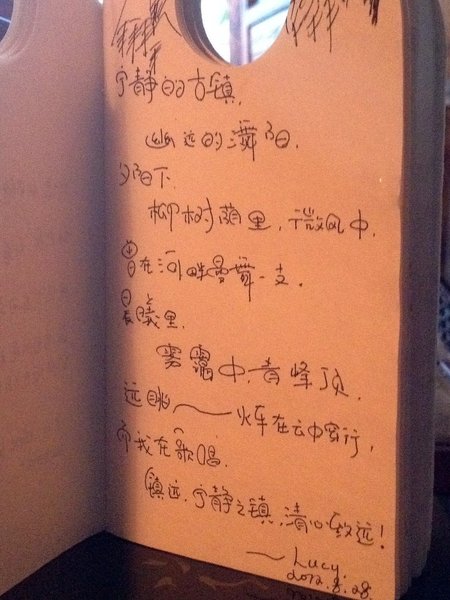 宁静的古镇,
幽远的㵲阳.
夕阳下.
柳树荫里,微风中,
曾在河畔曼舞一支.
晨曦里.
雾霭中,青峰顶.
远眺——火车在云中穿行,
而我在歌唱.
镇远,宁静之镇,清心致远!
—Lucy.
2012.8.28.